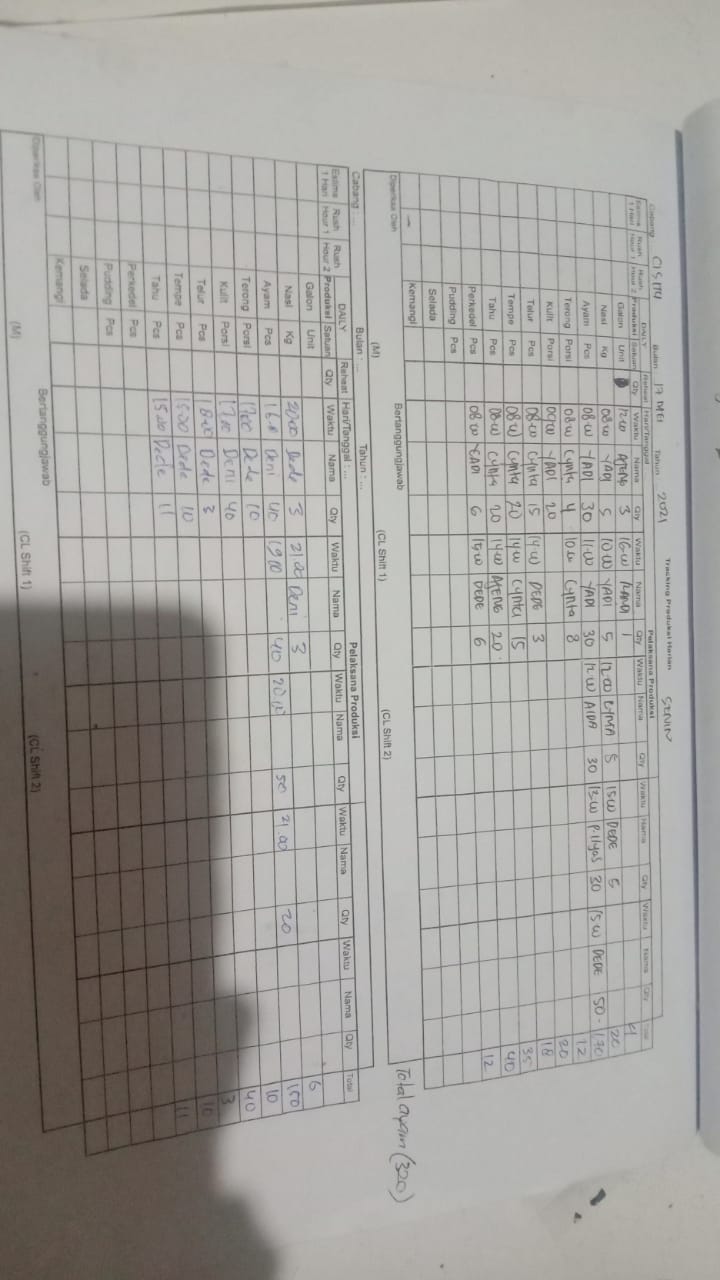 Tracking Produksi Harian SENIN
Cabang CISITU Bulan 17 MEI Tahun 2021
Estima 1 Hari Rush Hour 1 Rush Hour 2 DAILY Produksi Satuan Reheat Qty Hari/Tanggal Waktu Nama Qty Waktu Nama Pelaksana Produksi Qty Waktu Nama Qty Waktu Nama Qty Waktu Nama Qty Total
Galon Unit 12.00 AJENG 3 16.00 1 4
Nasi Kg 08.00 YADI 5 10.00 YADI 5 12.00 5 15.00 DEDE 5 20
Ayam Pcs 08.00 YADI 30 11.00 YADI 30 12.00 AIDA 30 13.00 P. Ilyas 30 15.00 DEDE 50 170
Terong Porsi 08.00 Cynta 4 10.00 Cynta 8 12
Kulit Porsi 09.00 YADI 20 20
Telur Pcs 08.00 Cynta 15 14.00 DEDE 3 18
Tempe Pcs 08.00 Cynta 20 14.00 Cynta 15 35
Tahu Pcs 08.00 Cynta 20 14.00 AJENG 20 40
Perkedel Pcs 08.00 YADI 6 15.00 DEDE 6 12
Pudding Pcs
Selada
Kemangi
Diperiksa Oleh Bertanggungjawab
(M) (CL Shift 1) (CL Shift 2)
Total ayam (320)
Cabang : ... Bulan : ... Tahun : ...
Estima 1 Hari Rush Hour 1 Rush Hour 2 DAILY Produksi Satuan Reheat Qty Hari/Tanggal : ... Waktu Nama Qty Waktu Nama Pelaksana Produksi Qty Waktu Nama Qty Waktu Nama Qty Waktu Nama Qty Total
Galon Unit
Nasi Kg 20.00 Dede 3 21.00 Deni 3 6
Ayam Pcs Deni 40 19.10 40 50 21.00 20 150
Terong Porsi 17.00 Dede 10 10
Kulit Porsi Deni 40 40
Telur Pcs Dede 3 3
Tempe Pcs 15.00 Dede 10 10
Tahu Pcs 15.00 Dede 11 11
Perkedel Pcs
Pudding Pcs
Selada
Kemangi
Diperiksa Oleh Bertanggungjawab
(M) (CL Shift 1) (CL Shift 2)